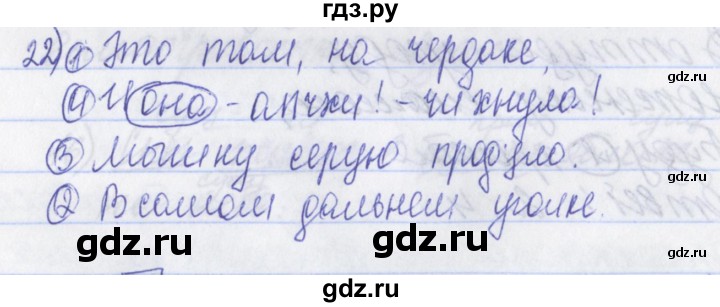 гдз.ру
22) 1 Это там, на чердаке,
4 И она - апчхи! - чихнула!
3 Мышку серую продуло.
2 В самом дальнем уголке.
gdz.ru
gdz.ru
gdz.ru
gdz.ru
gdz.ru
gdz.ru
gdz.ru